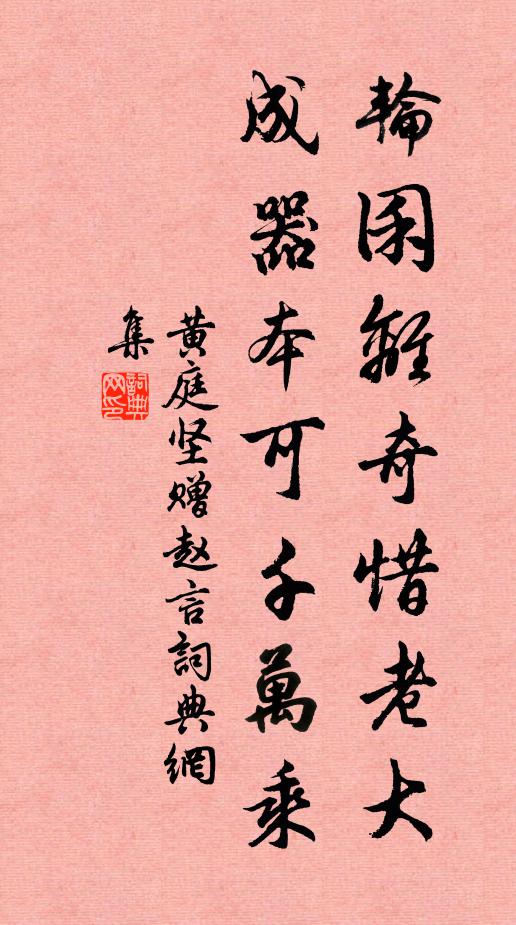 輪囷離奇惜老大
成器本可千萬乘
黄庭坚赠赵言詞典網
集
詞典网印